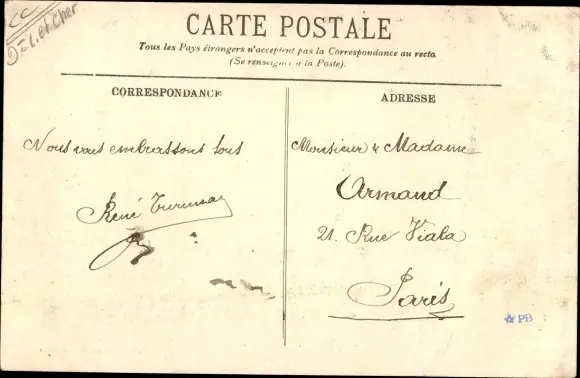 CC
L. et Cher
CARTE POSTALE
Tous les Pays étrangers n'acceptent pas la Correspondance au recto.
(Se renseigner à la Poste).
CORRESPONDANCE
Nous vous embrassons tous
René
ADRESSE
Monsieur & Madame
Armand
21. Rue Viala
Paris
PB